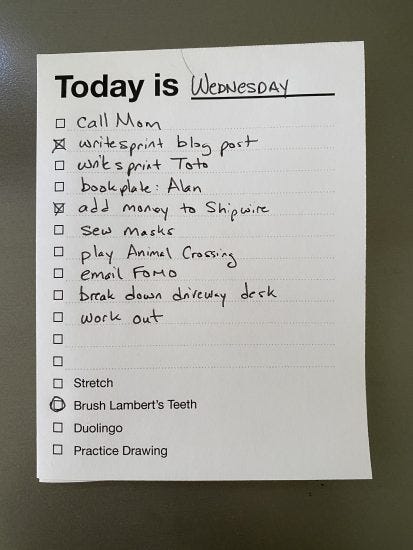 Today is WEDNESDAY
call Mom
writesprint blog post
writesprint Toto
bookplate: Alan
add money to Shipwire
sew masks
play Animal Crossing
email FOMO
break down driveway desk
work out
Stretch
Brush Lambert's Teeth
Duolingo
Practice Drawing